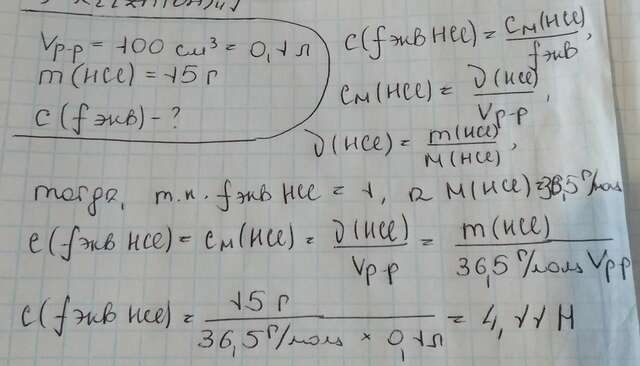 Vр-р = 100 см³ = 0,1 л
m(HCl) = 15 г
c(fэкв) - ?
c(fэкв HCl) = cм(HCl) / fэкв,
cм(HCl) = ν(HCl) / Vр-р,
ν(HCl) = m(HCl) / M(HCl),
тогда, т.к. fэкв HCl = 1, а M(HCl) = 36,5 г/моль
c(fэкв HCl) = cм(HCl) = ν(HCl) / Vр-р = m(HCl) / 36,5 г/моль Vр-р
c(fэкв HCl) = 15 г / 36,5 г/моль × 0,1 л = 4,11 Н